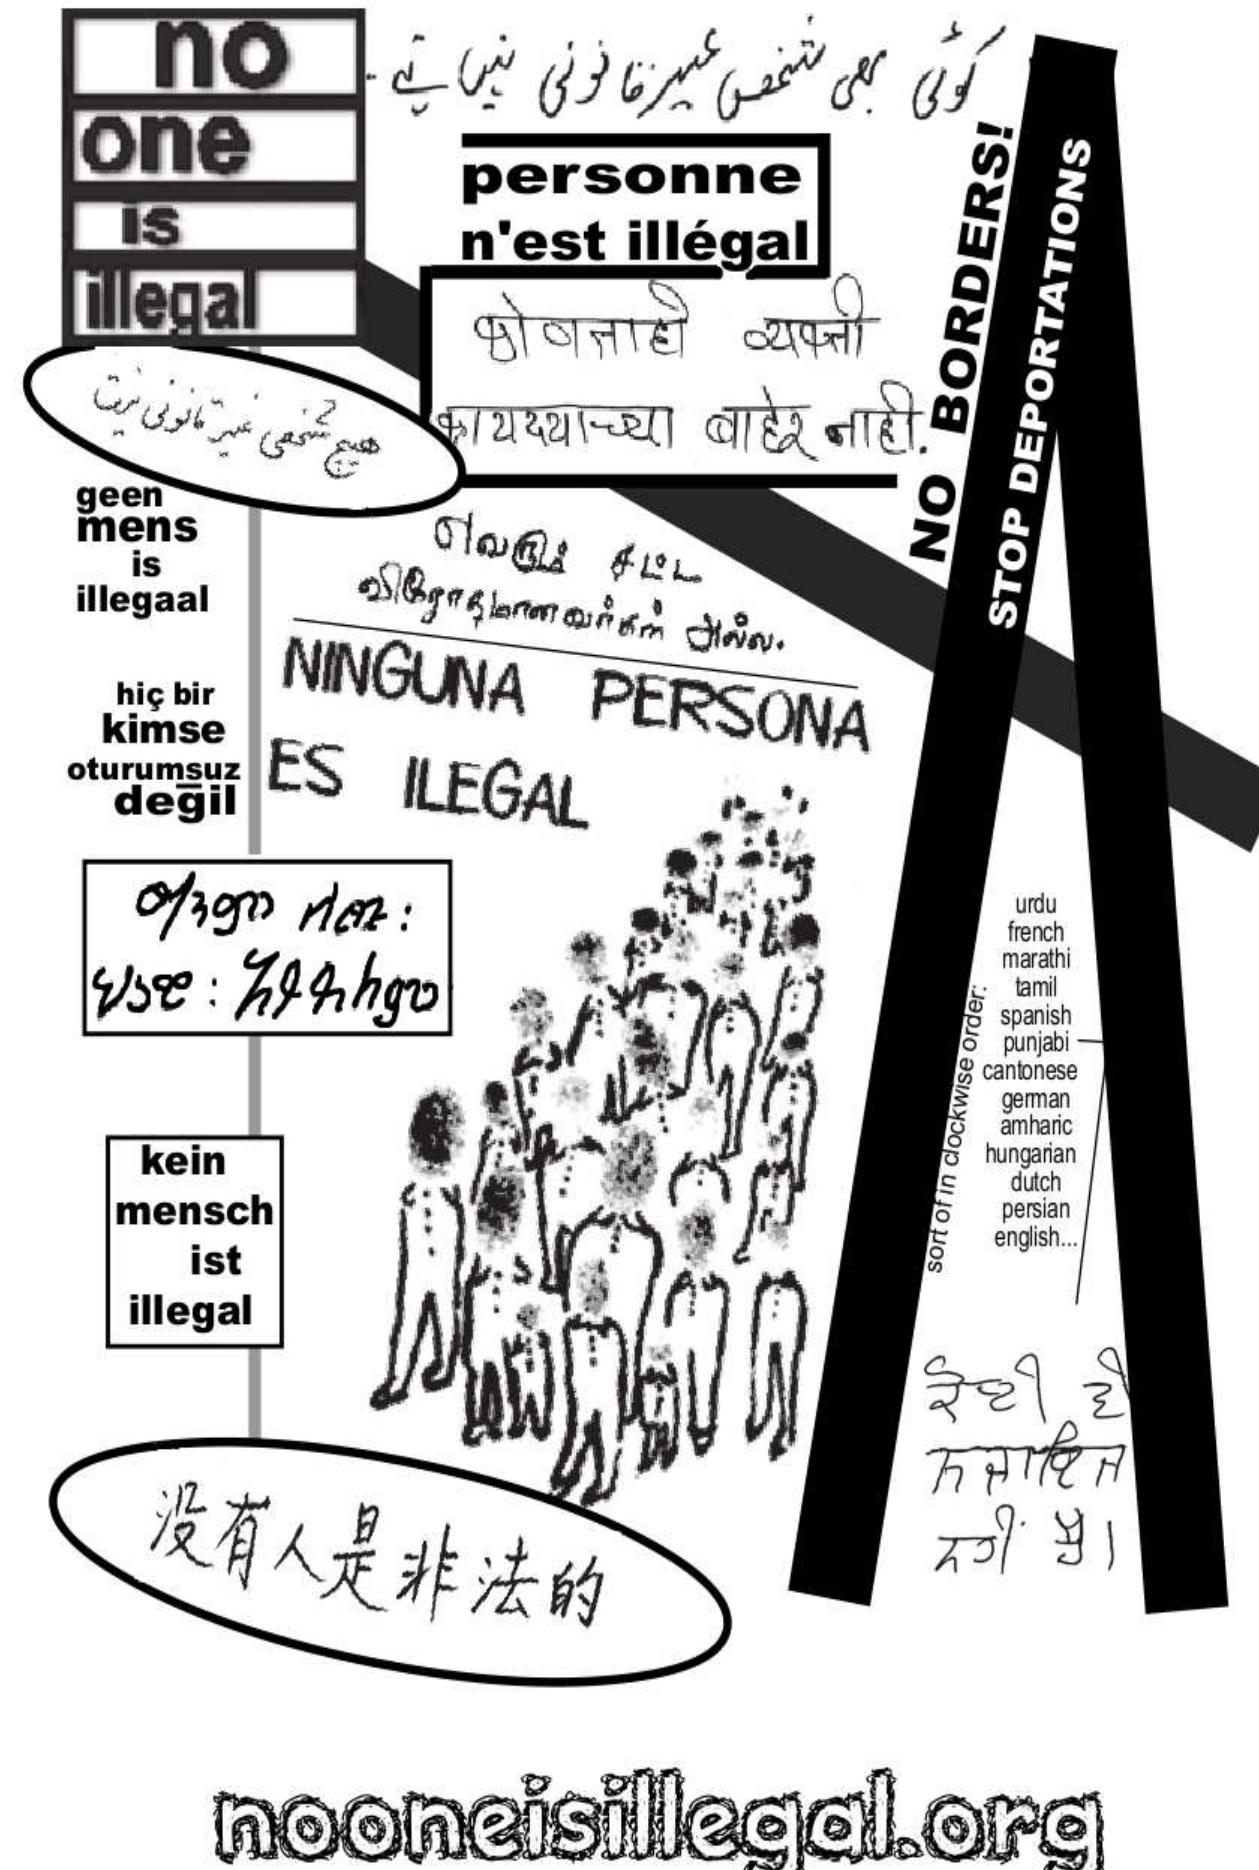 no
one
is
illegal
کوئی بھی شخص غیر قانونی نہیں ہے۔
personne
n'est illégal
व्यक्ती
कायद्याच्या बाहेर नाही.
NO BORDERS!
STOP DEPORTATIONS
هیچ شخصی غیر قانونی نیست
geen
mens
is
illegaal
எவரும் சட்ட
விரோதமானவர்கள் அல்ல.
NINGUNA PERSONA
ES ILEGAL
hiç bir
kimse
oturumsuz
değil
kein
mensch
ist
illegal
没有人是非法的
sort of in clockwise order:
urdu
french
marathi
tamil
spanish
punjabi
cantonese
german
amharic
hungarian
dutch
persian
english...
ਕੋਈ ਵੀ
ਨਜਾਇਜ
ਨਹੀਂ
nooneisillegal.org